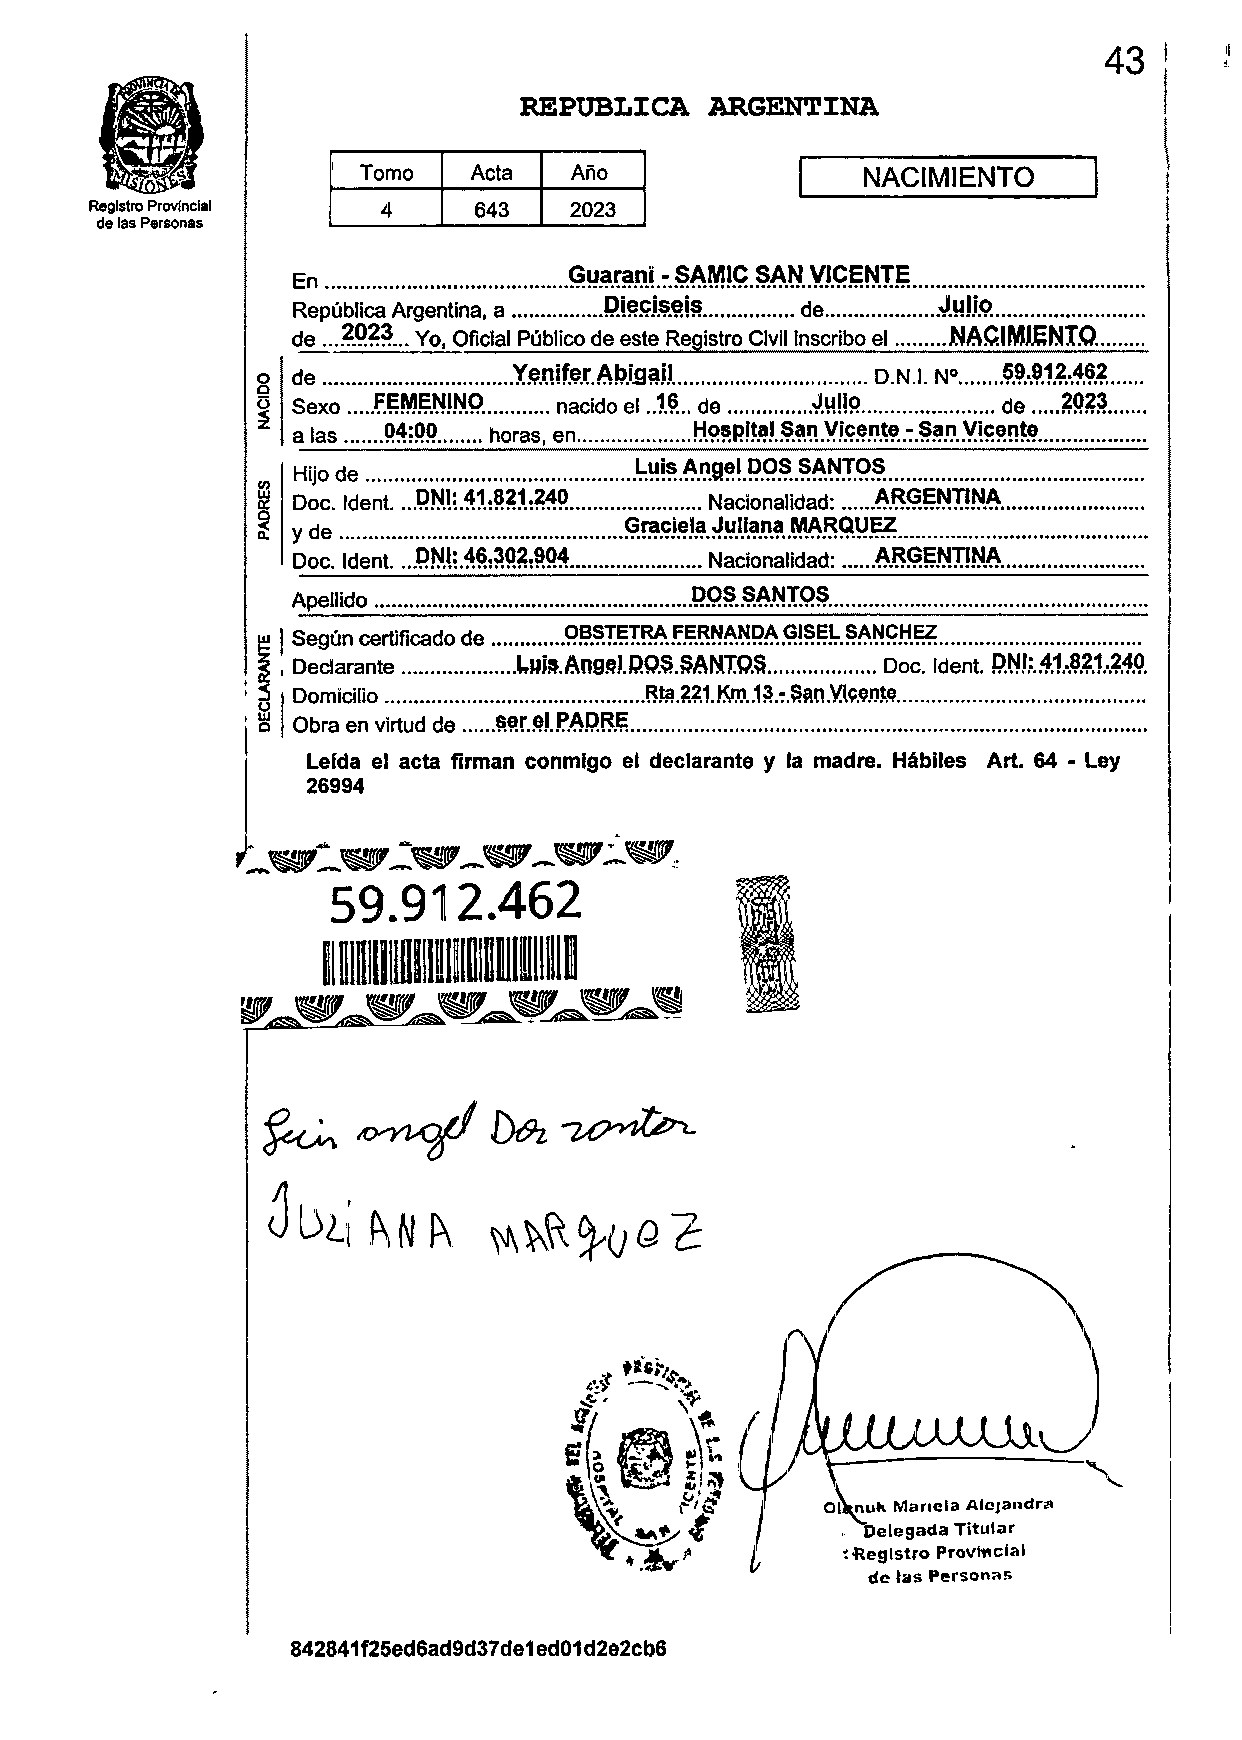 43
PROVINCIA DE
MISIONES
Registro Provincial
de las Personas
REPUBLICA ARGENTINA
Tomo Acta Año
4 643 2023
NACIMIENTO
En ........ Guarani - SAMIC SAN VICENTE ........
República Argentina, a ........ Dieciseis ........ de ........ Julio ........
de ... 2023 ... Yo, Oficial Público de este Registro Civil Inscribo el ........ NACIMIENTO ........
NACIDO
de ........ Yenifer Abigail ........ D.N.I. Nº ........ 59.912.462 ........
Sexo .... FEMENINO ........ nacido el .. 16 .. de ........ Julio ........ de ..... 2023 ........
a las ...... 04:00 ........ horas, en ........ Hospital San Vicente - San Vicente ........
PADRES
Hijo de ........ Luis Angel DOS SANTOS ........
Doc. Ident. .. DNI: 41.821.240 ........ Nacionalidad: ..... ARGENTINA ........
y de ........ Graciela Juliana MARQUEZ ........
Doc. Ident. .. DNI: 46.302.904 ........ Nacionalidad: ..... ARGENTINA ........
Apellido ........ DOS SANTOS ........
DECLARANTE
Según certificado de ........ OBSTETRA FERNANDA GISEL SANCHEZ ........
Declarante ........ Luis Angel DOS SANTOS ........ Doc. Ident. DNI: 41.821.240
Domicilio ........ Rta 221 Km 13 - San Vicente ........
Obra en virtud de ..... ser el PADRE ........
Leída el acta firman conmigo el declarante y la madre. Hábiles Art. 64 - Ley
26994
59.912.462
Luis angel Dos santos
JULIANA MARQUEZ
HOSPITAL SAN VICENTE
Mariela Alejandra
Delegada Titular
Registro Provincial
de las Personas
842841f25ed6ad9d37de1ed01d2e2cb6